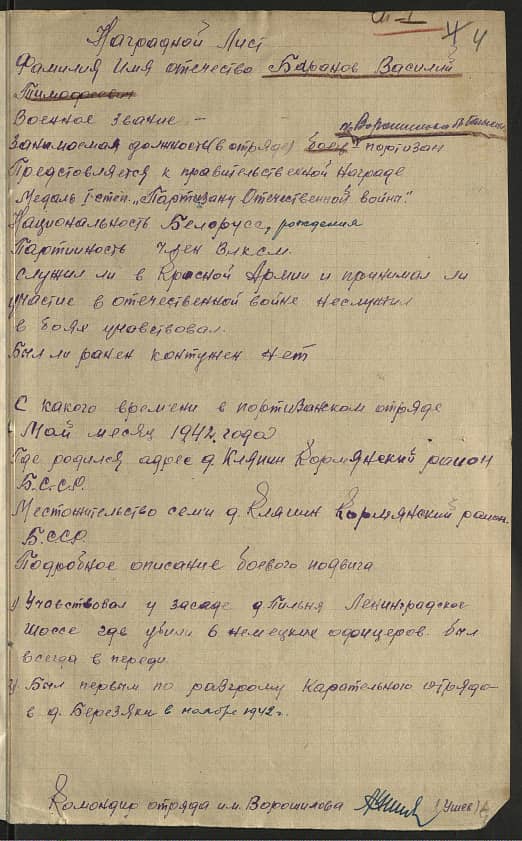 4
Наградной Лист
Фамилия Имя отчество Баранов Василий
Тимофеевич
Военное звание -
Занимаемая должность (в отряде) боец партизан
Ворошилова
Предстовляется к правительственной Награде
Медаль I степ. "Партизану Отечественной войны".
Национальность Белорусс, рождения
Партийность Член Влксм.
Служил ли в Красной Армии и принимал ли
участие в отечественной войне неслужил
в боях учавствовал.
Был ли ранен контужен нет
С какого времени в портизанском отряде
Май месяц 1942 года
Где родился адрес д. Клянин Кормянский район
Б.С.С.Р.
Местожительство семи д. Клянин Кормянский район.
Б.ССР.
Подробное описание боевого подвига
1) Учавствовал у засаде д. Пильня Ленинградское
шоссе где убили 2 немецких официеров. был
всегда в переди
2) Был первым по разгрому Карательного отряда
в д. Березяки в ноябре 1942 г.
Командир отряда им. Ворошилова (Ушев)